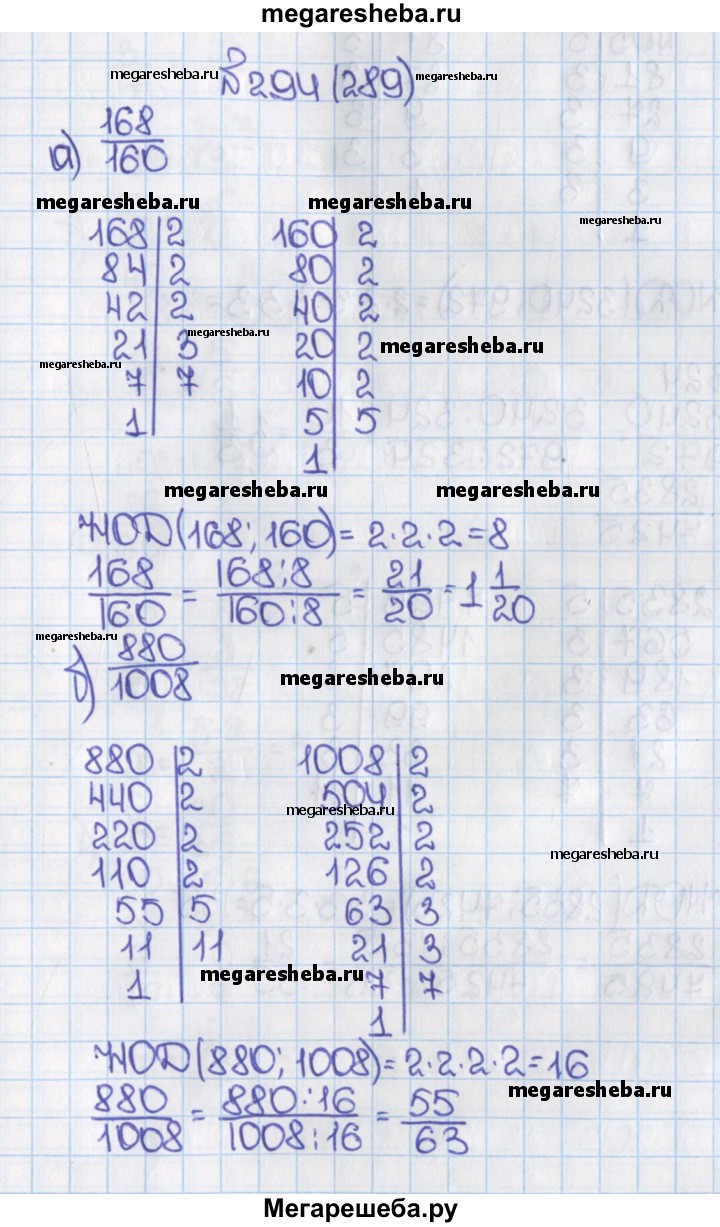 megaresheba.ru
megaresheba.ru № 294 (289) megaresheba.ru
а) 168/160
megaresheba.ru megaresheba.ru megaresheba.ru
168 | 2 160 | 2
84 | 2 80 | 2
42 | 2 40 | 2
megaresheba.ru
21 | 3 20 | 2 megaresheba.ru
megaresheba.ru
7 | 7 10 | 2
1 | 5 | 5
1
megaresheba.ru megaresheba.ru
НОД(168; 160) = 2·2·2=8
168/160 = 168:8/160:8 = 21/20 = 1 1/20
megaresheba.ru
б) 880/1008
megaresheba.ru
880 | 2 1008 | 2
440 | 2 504 | 2
megaresheba.ru
220 | 2 252 | 2
megaresheba.ru
110 | 2 126 | 2
55 | 5 63 | 3
11 | 11 21 | 3
megaresheba.ru
1 | 7 | 7
1
НОД(880; 1008)=2·2·2·2=16
megaresheba.ru
880/1008 = 880:16/1008:16 = 55/63
Мегарешеба.ру